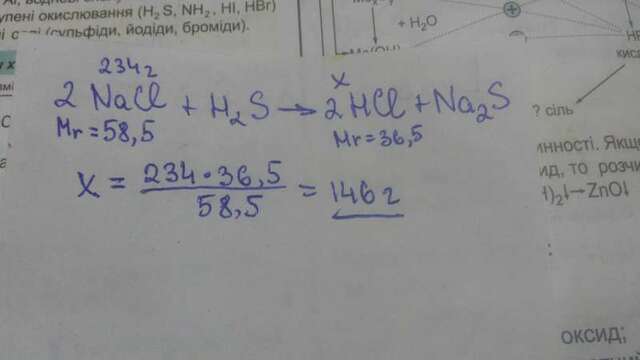 упені окислювання (H₂S, NH₂, HI, HBr)
солі (сульфіди, йодіди, броміди).
+ H₂O
234 г
x
2 NaCl + H₂S → 2 HCl + Na₂S
Mr = 58,5
Mr = 36,5
x = 234 · 36,5 / 58,5 = 146 г
кис
? сіль
инності. Якщо
ид, то розчи
)₂↓→ZnO↓
ОКСИД;